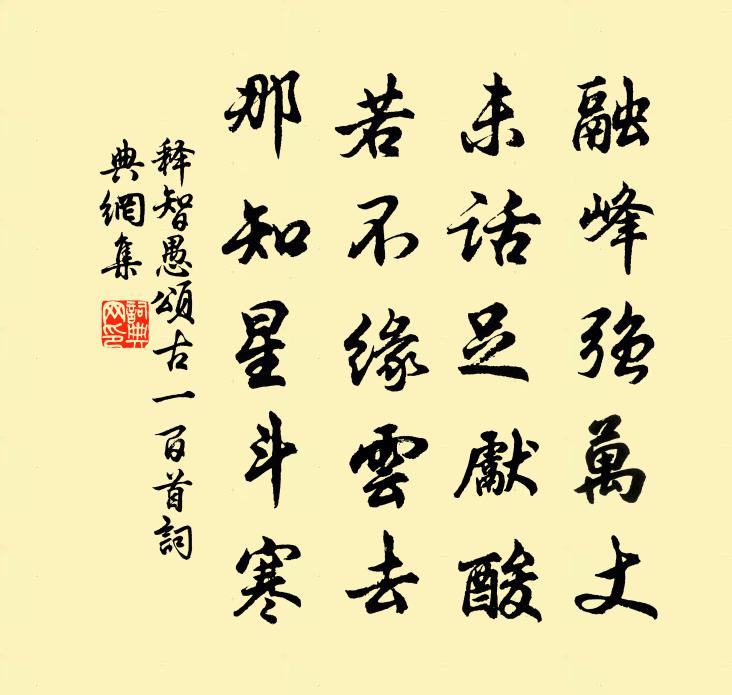 融峰強萬丈
未話足獻酸
若不緣雲去
那知星斗寒
释智愚頌古一百首詞
典網集
詞典網印